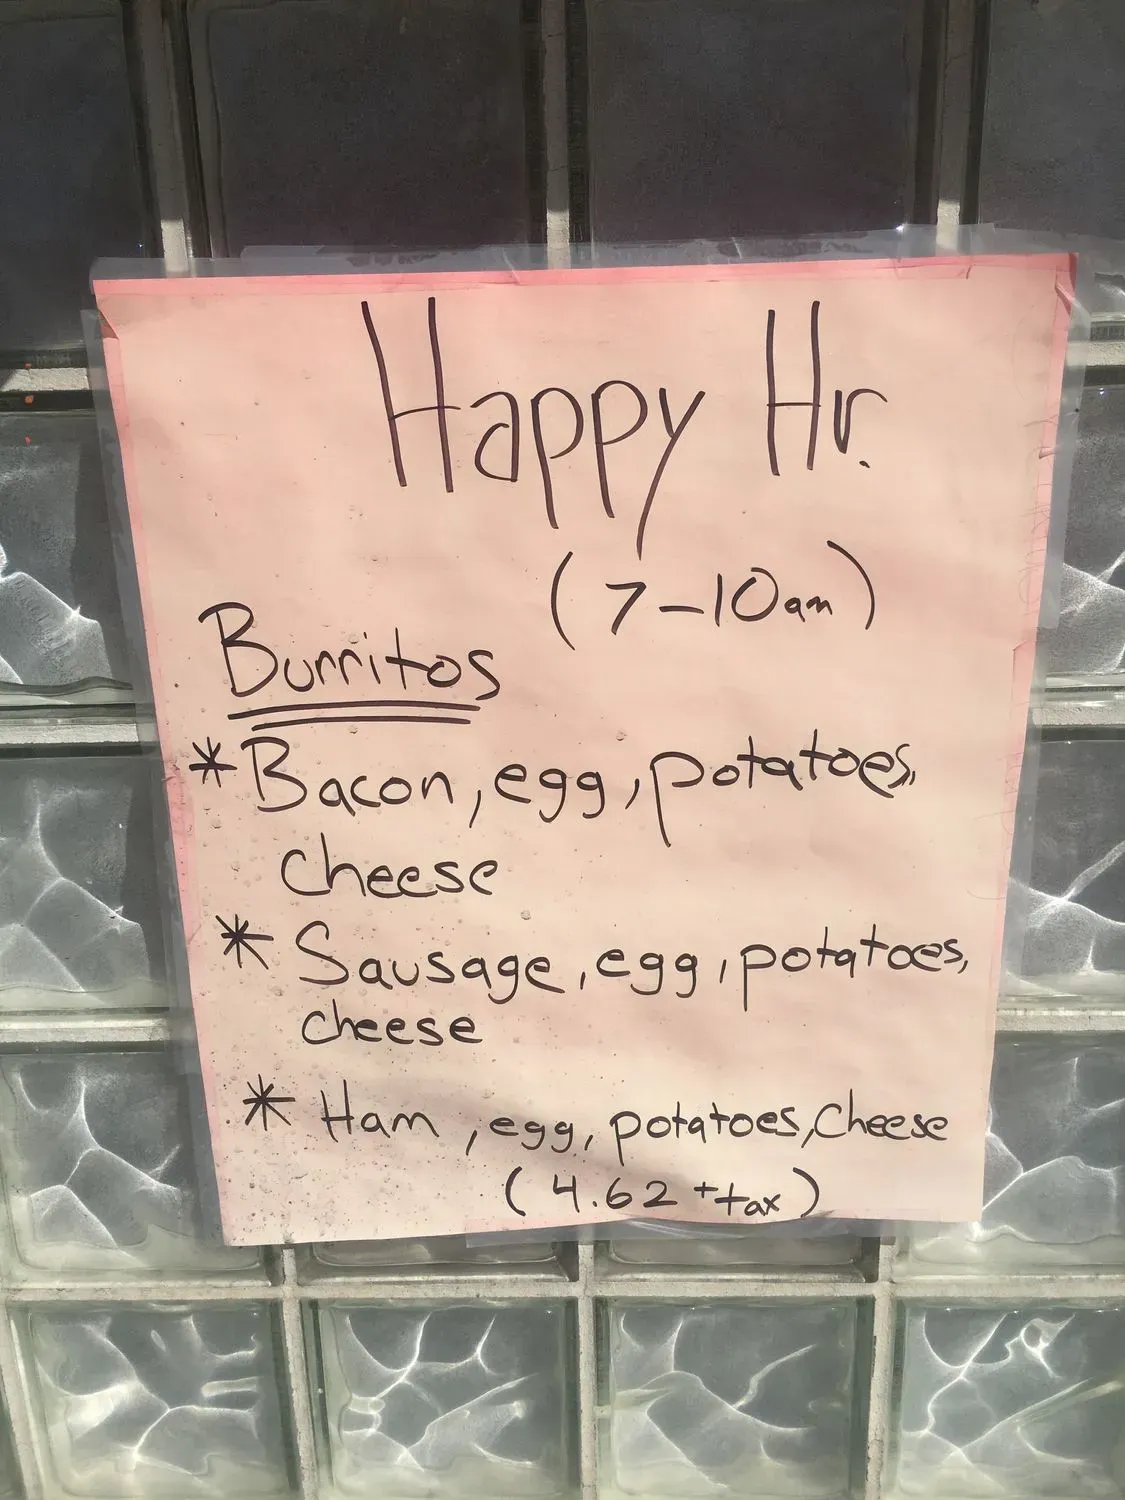 Happy Hr.
(7-10am)
Burritos
* Bacon, egg, potatoes,
cheese
* Sausage, egg, potatoes,
cheese
* Ham, egg, potatoes, Cheese
(4.62 + tax)